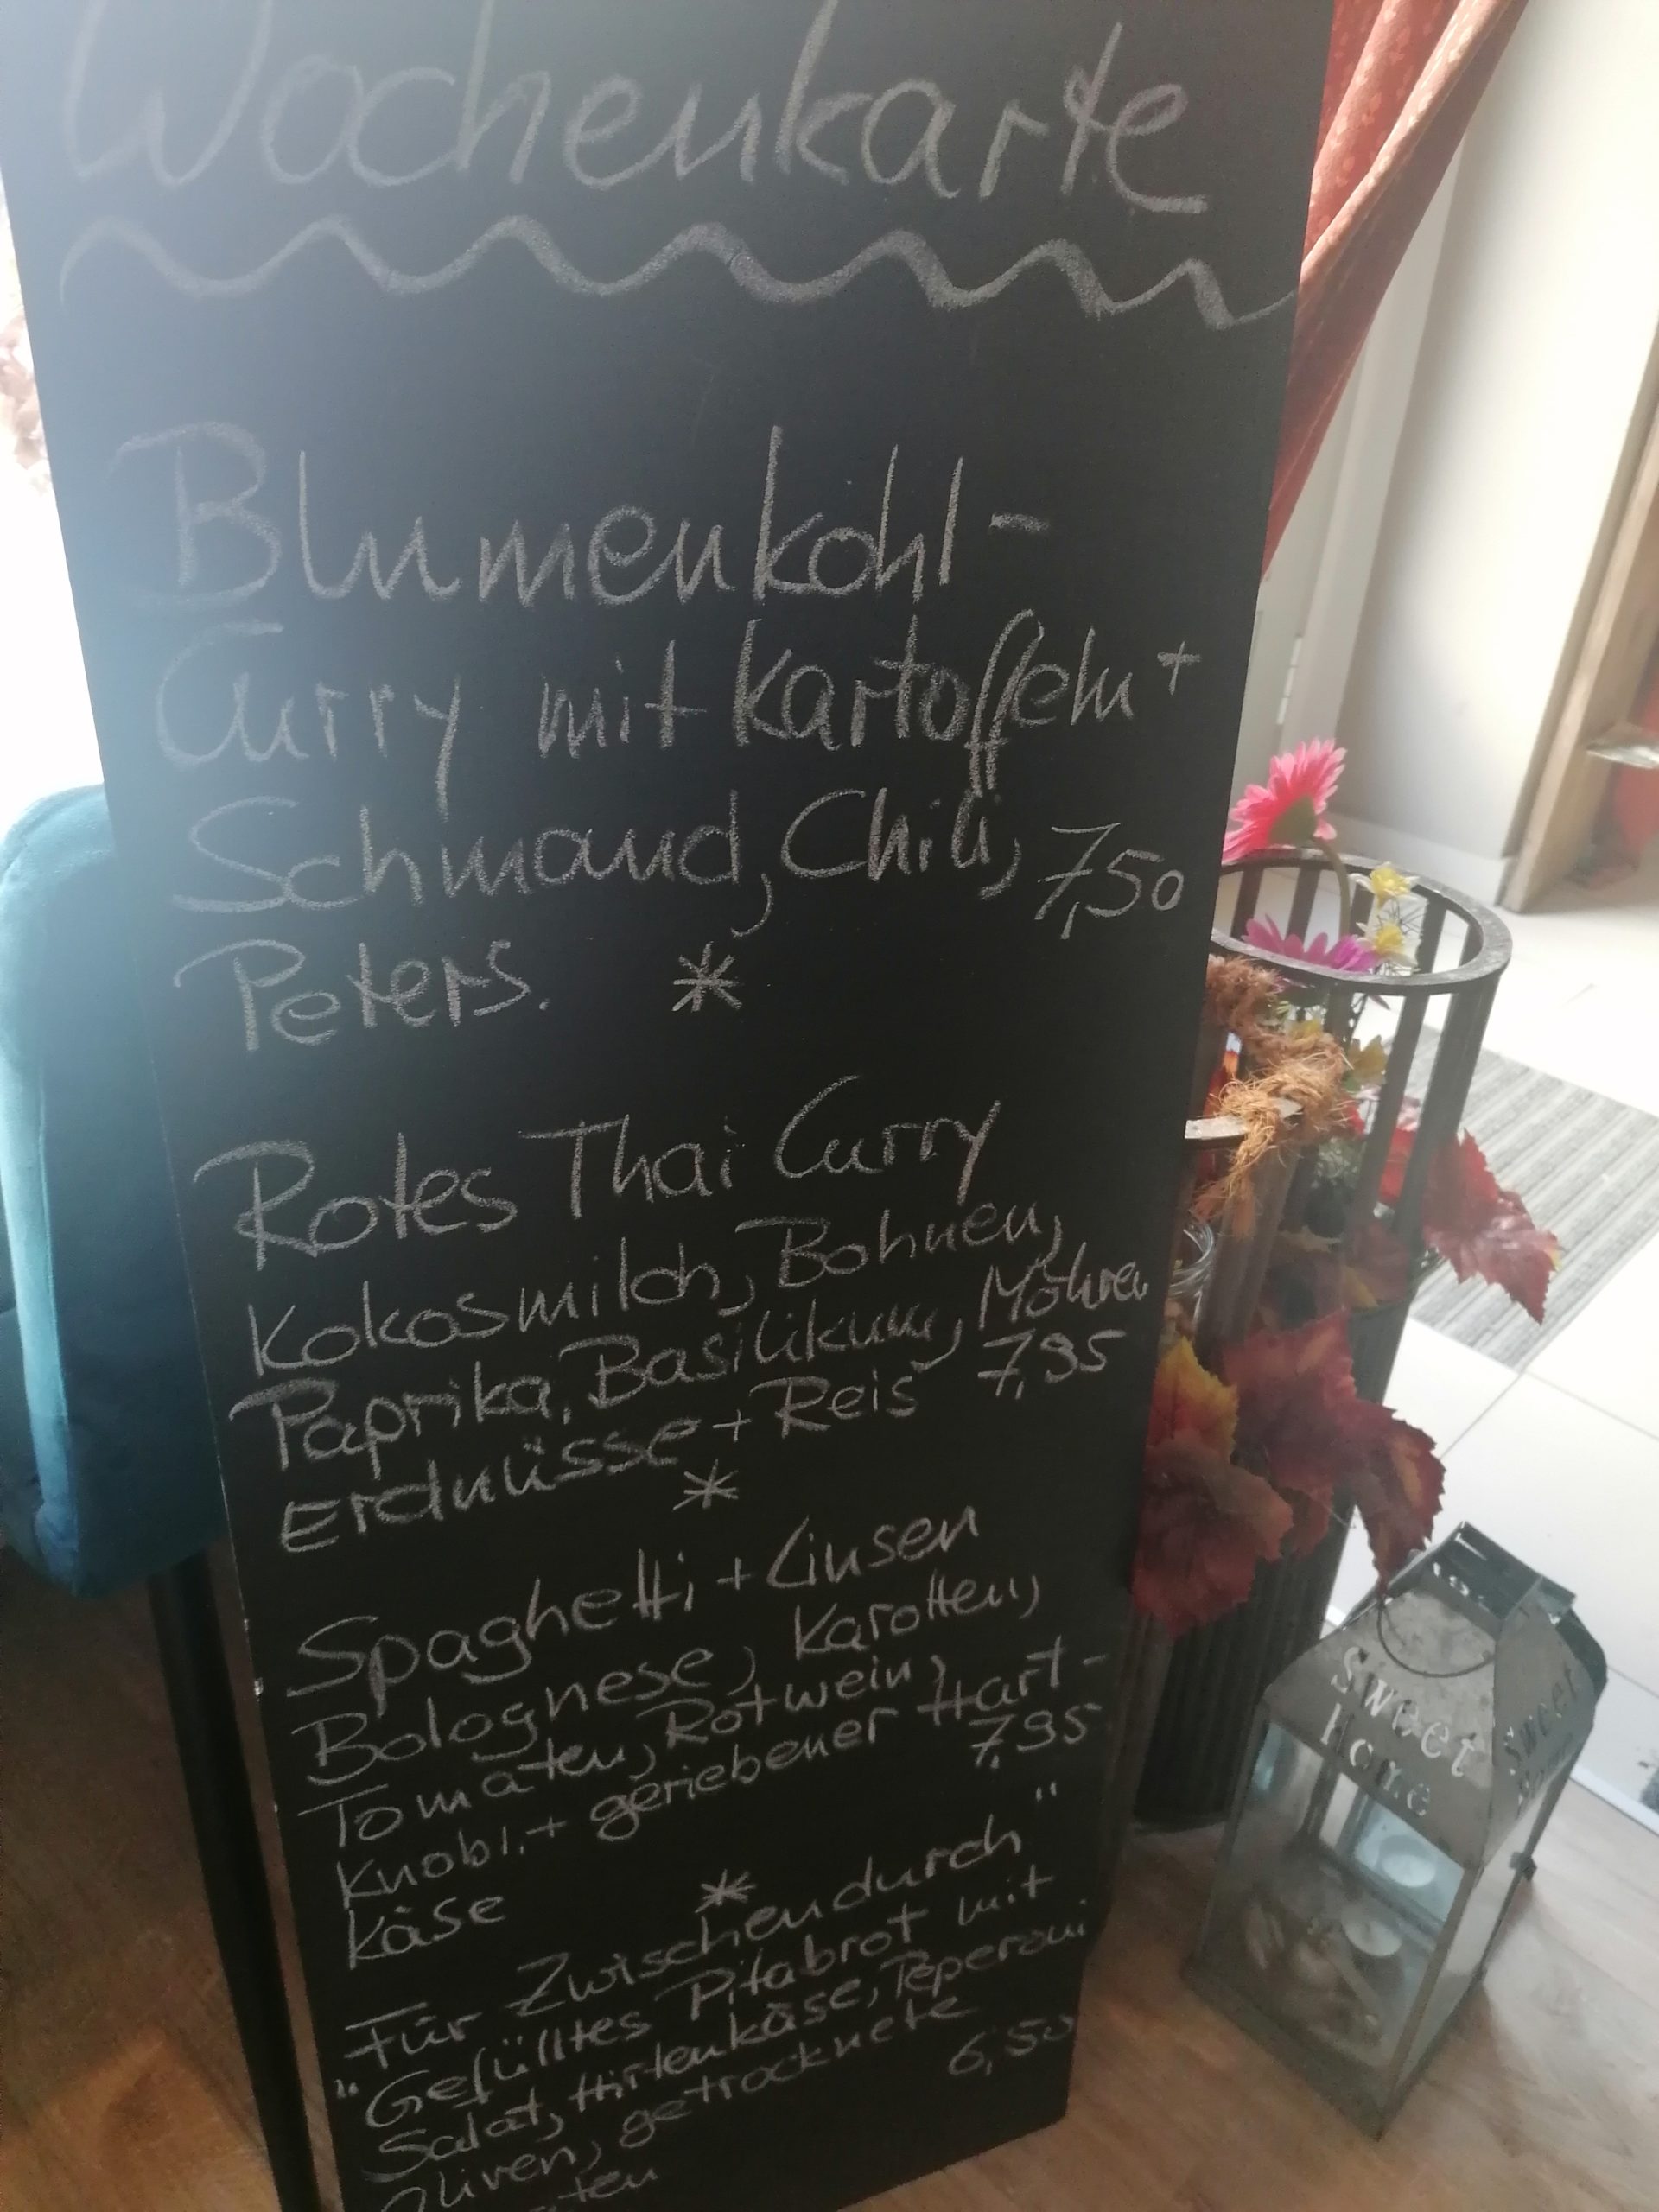 Wochenkarte
Blumenkohl-
Curry mit Kartoffeln +
Schmand, Chili, 7,50
Peters. *
Rotes Thai Curry
Kokosmilch, Bohnen,
Paprika, Basilikum, Möhren
Erdnüsse + Reis 7,95
*
Spaghetti + Linsen
Bolognese, Karotten,
Tomaten, Rotwein,
Knobl. + geriebener Hart-
Käse 7,95
*
Für Zwischendurch "
" Gefülltes Pitabrot mit
Salat, Hirtenkäse, Peperoni
Oliven, getrocknete 6,50
Sweet
Home
Sweet